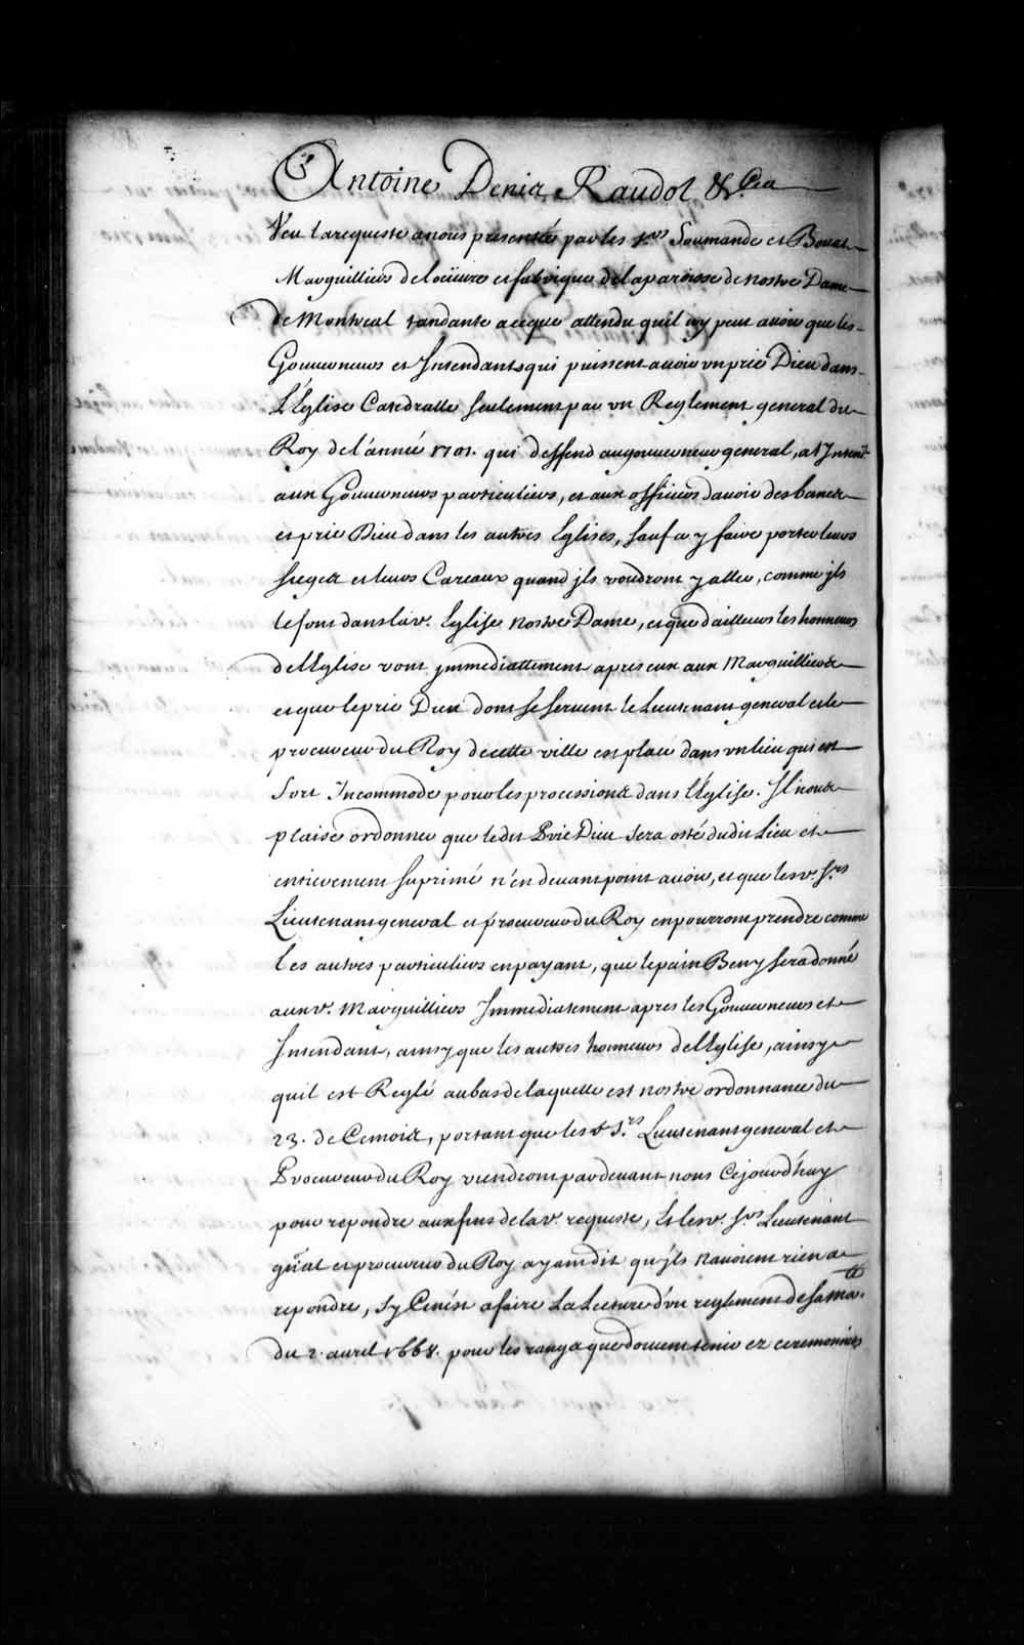 Antoine Denis Raudot &c.a
Veu la requeste a nous presentée par les Srs Soumande et Bouat
Marguilliers de loeuvre et fabrique de la paroisse de nostre Dame
de Montreal tandante a ceque attendu quil ny peut avoir que les
Gouverneurs et Intendants qui puissent avoir un prie Dieu dans
L'Eglise Catedralle seulement par un Reglement general du
Roy de l'année 1701. qui deffend au gouverneur general, a l'Intendt
aux Gouverneurs particuliers, et aux officiers davoir des bancs
et prie Dieu dans les autres Eglises, sauf a y faire porter leurs
sieges et leurs Careaux quand jls voudront y aller, comme jls
le font dans lav. Eglise nostre Dame, et que dailleurs les honneurs
de lEglise vont jmmediattement apres eux aux Marguilliers
et que le prie Dieu dont se servent le Lieutenant general et le
procureur du Roy de cette ville est placé dans un lieu qui est
fort Incommode pour les processions dans l'Eglise. Il nous
plaise ordonner que ledit Prie Dieu sera osté dudit Lieu et
entierement suprimé n'en devant point avoir, et que lesv. Srs
Lieutenant general et procureur du Roy en pourront prendre comme
les autres particuliers en payant, que le pain Beny sera donné
auxv. Marguilliers Immediatement apres les Gouverneurs et
Intendant, ainsy que les autres honneurs de lEglise, ainsy
quil est Reglé au bas de laquelle est nostre ordonnance du
23. de Cemois, portant que les d Srs Lieutenant general et
Procureur du Roy viendront pardevant nous Cejourd'huy
pour repondre aux fins de lav. requeste, Et lesv. Srs Lieutenant
gñal et procureur du Roy ayant dit qu'jls navoient rien a
repondre, sy Cen'est a faire La Lecture d'un reglement de sa ma.té
du 2. avril 1668. pour les rangs que doivent tenir ez ceremonies